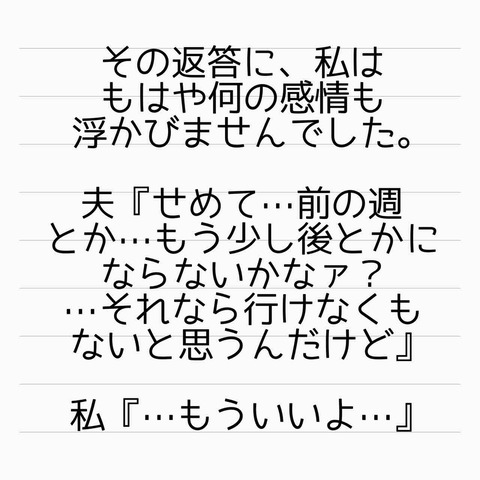 その返答に、私は
もはや何の感情も
浮かびませんでした。
夫『せめて…前の週
とか…もう少し後とかに
ならないかなァ？
…それなら行けなくも
ないと思うんだけど』
私『…もういいよ…』